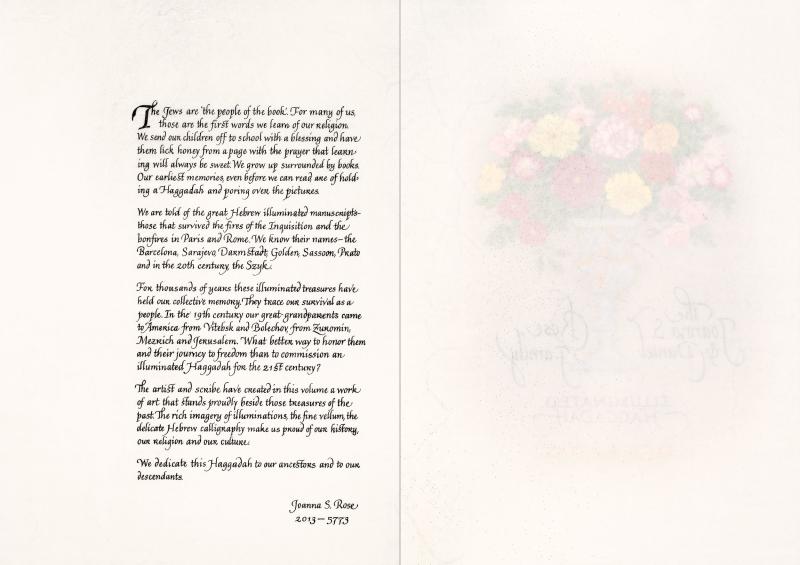 The Jews are 'the people of the book'. For many of us,
those are the first words we learn of our religion.
We send our children off to school with a blessing and have
them lick honey from a page with the prayer that learn-
ing will always be sweet. We grow up surrounded by books.
Our earliest memories, even before we can read are of hold-
ing a Haggadah and poring over the pictures.
We are told of the great Hebrew illuminated manuscripts-
those that survived the fires of the Inquisition and the
bonfires in Paris and Rome. We know their names – the
Barcelona, Sarajevo, Darmstadt, Golden, Sassoon, Prato
and in the 20th century, the Szyk.
For thousands of years these illuminated treasures have
held our collective memory. They trace our survival as a
people. In the 19th century our great-grandparents came
to America from Vitebsk and Bolechov, from Zuromin,
Mezrich and Jerusalem. What better way to honor them
and their journey to freedom than to commission an
illuminated Haggadah for the 21st century?
The artist and scribe have created in this volume a work
of art that stands proudly beside those treasures of the
past. The rich imagery of illuminations, the fine vellum, the
delicate Hebrew calligraphy make us proud of our history,
our religion and our culture.
We dedicate this Haggadah to our ancestors and to our
descendants.
Joanna S. Rose
2013 – 5773
The
Joanna S.
& Daniel
Rose
Family
ILLUMINATED
HAGGADAH